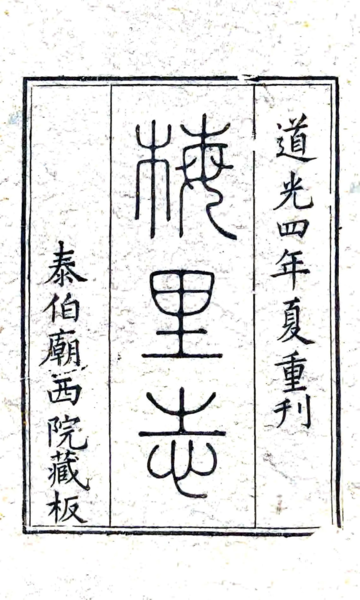 道光四年夏重刋
梅里志
泰伯廟西院藏板